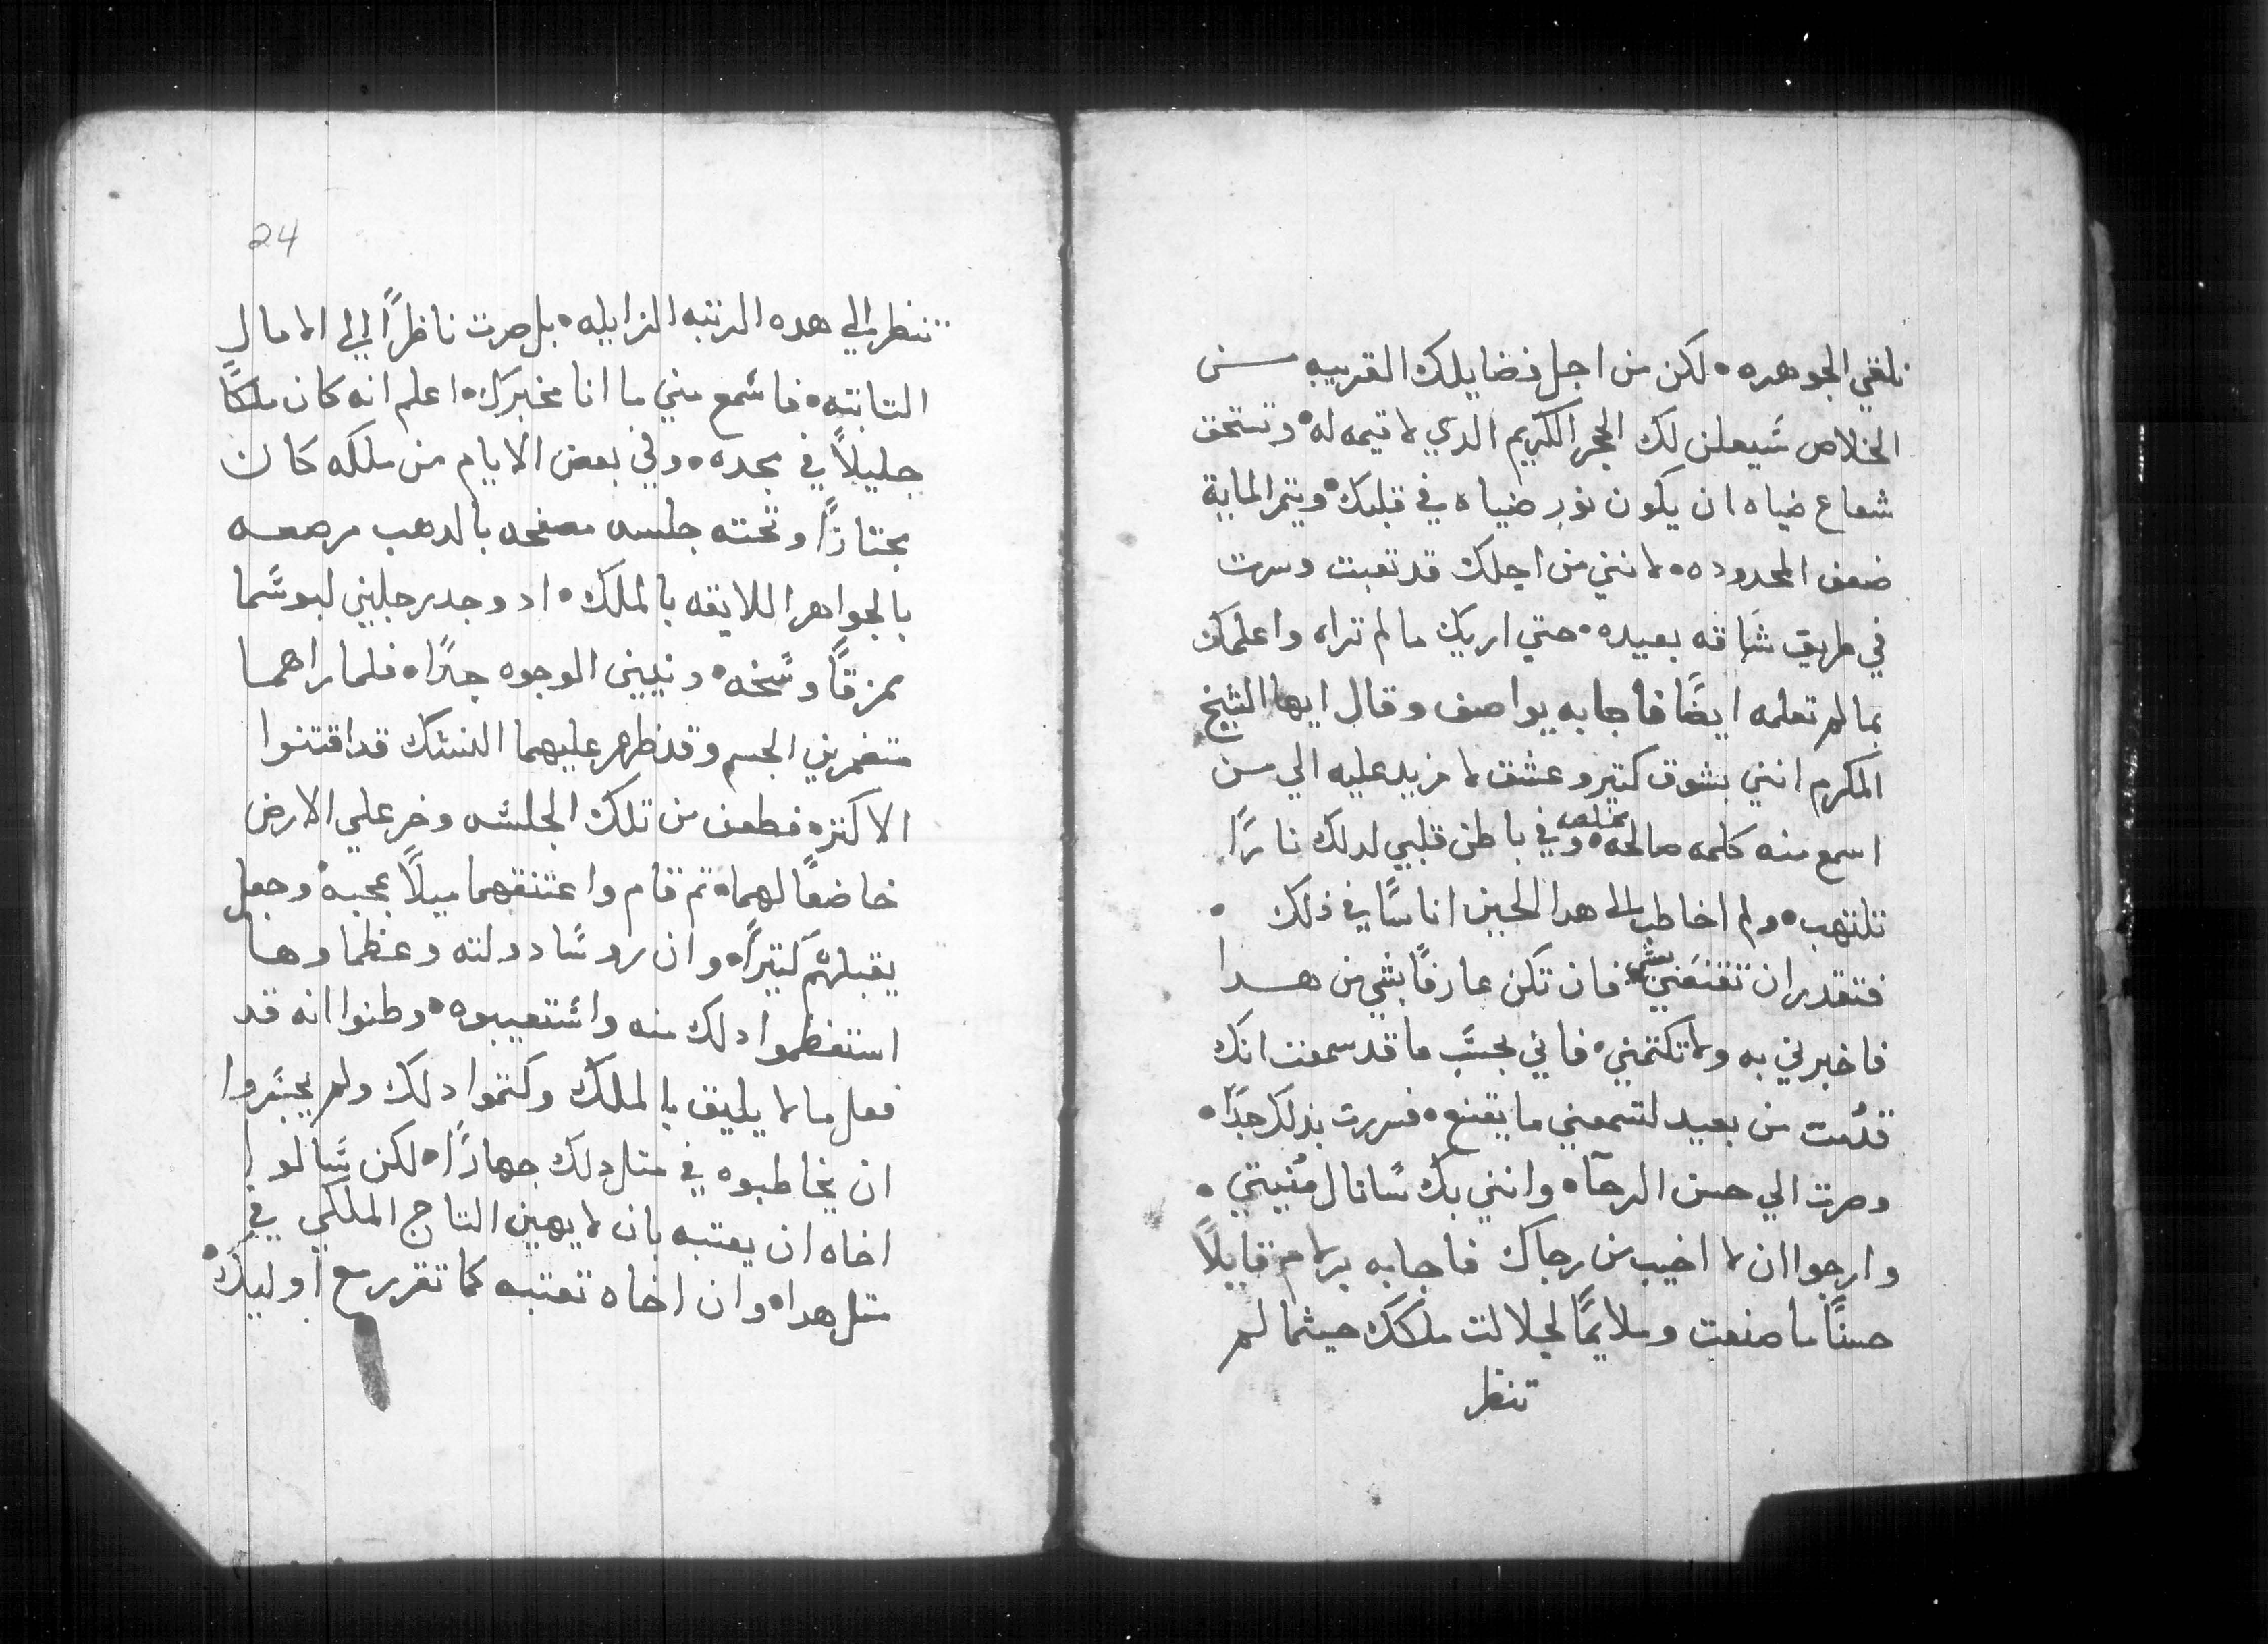 نلقي الجوهره • لكن من اجل فضايلك القريبه من
الخلاص سيعلن لك الحجر الكريم الدي لا قيمه له • وتستحق
شعاع ضياه ان يكون نور ضياه في قلبك • ويتمر الماية
ضعف المحدوده • لانني من اجلك قد تعبت وسرت
في طريق شاقه بعيده • حتي اريك ما لم تراه واعلمك
بما لم تعلمه ايضًا فاجابه يواصف وقال ايها الشيخ
المكرم انني بشوق كتير وعشق لا مزيد عليه الي من
اسمع منه كلمه صالحه مخلصه • وفي باطن قلبي لدلك نارًا
تلتهب • ولم اخاطب الي هدا الحين اناسًا في ذلك •
فتقدر ان تقنعني بشي • فان تكن عارفًا بشي من هدا
فاخبرني به ولا تكتمني • فاني بحسب ما قد سمعت انك
قدمت من بعيد لتسمعني ما يقنع • فسررت بذلك جدًا •
وصرت الي حسن الرجآ • وانني بك سانال مُنيتي •
وارجوا ان لا اخيب من رجاك فاجابه برلام قايلًا
حسنًا ما صنعت وملايمًا لجلالت ملكك حيثما لم
تنظر
24
تنظر الي هده الرتبه الزايله • بل صرت ناظرًا الي الامال
التابته • فاسمع مني ما انا مخبرك • اعلم انه كان ملكًا
جليلًا في مجده • وفي بعض الايام من ملكه كان
مجتازًا وتحته جلسه مصفحه بالدهب مرصعه
بالجواهر اللايقه بالملك • اد وجد رجلين لبوسهما
ممزقًا وسخه • ونييني الوجوه جدًا • فلما راهما
الجسم وقد ظهر عليهما النسك قد اقتنوا
من تلك الجلسه وخر علي الارض
خاضعًا لهما • تم قام واعتنقهما ميلًا بمحبه • وجعل
يقبلهُم كتيرًا • وان روسًا دولته وعظماوها
استفظموا دلك منه واستعيبوه • وظنوا انه قد
فعل ما لا يليق بالملك وكتموا دلك ولم يجسروا
ان يخاطبوه في متل دلك جهارًا • لكن سالوا
اخاه ان يعتبه بان لا يهين التاج الملكي في
متل هدا • وان اخاه تعتبه كما تقرر مع اوليك •